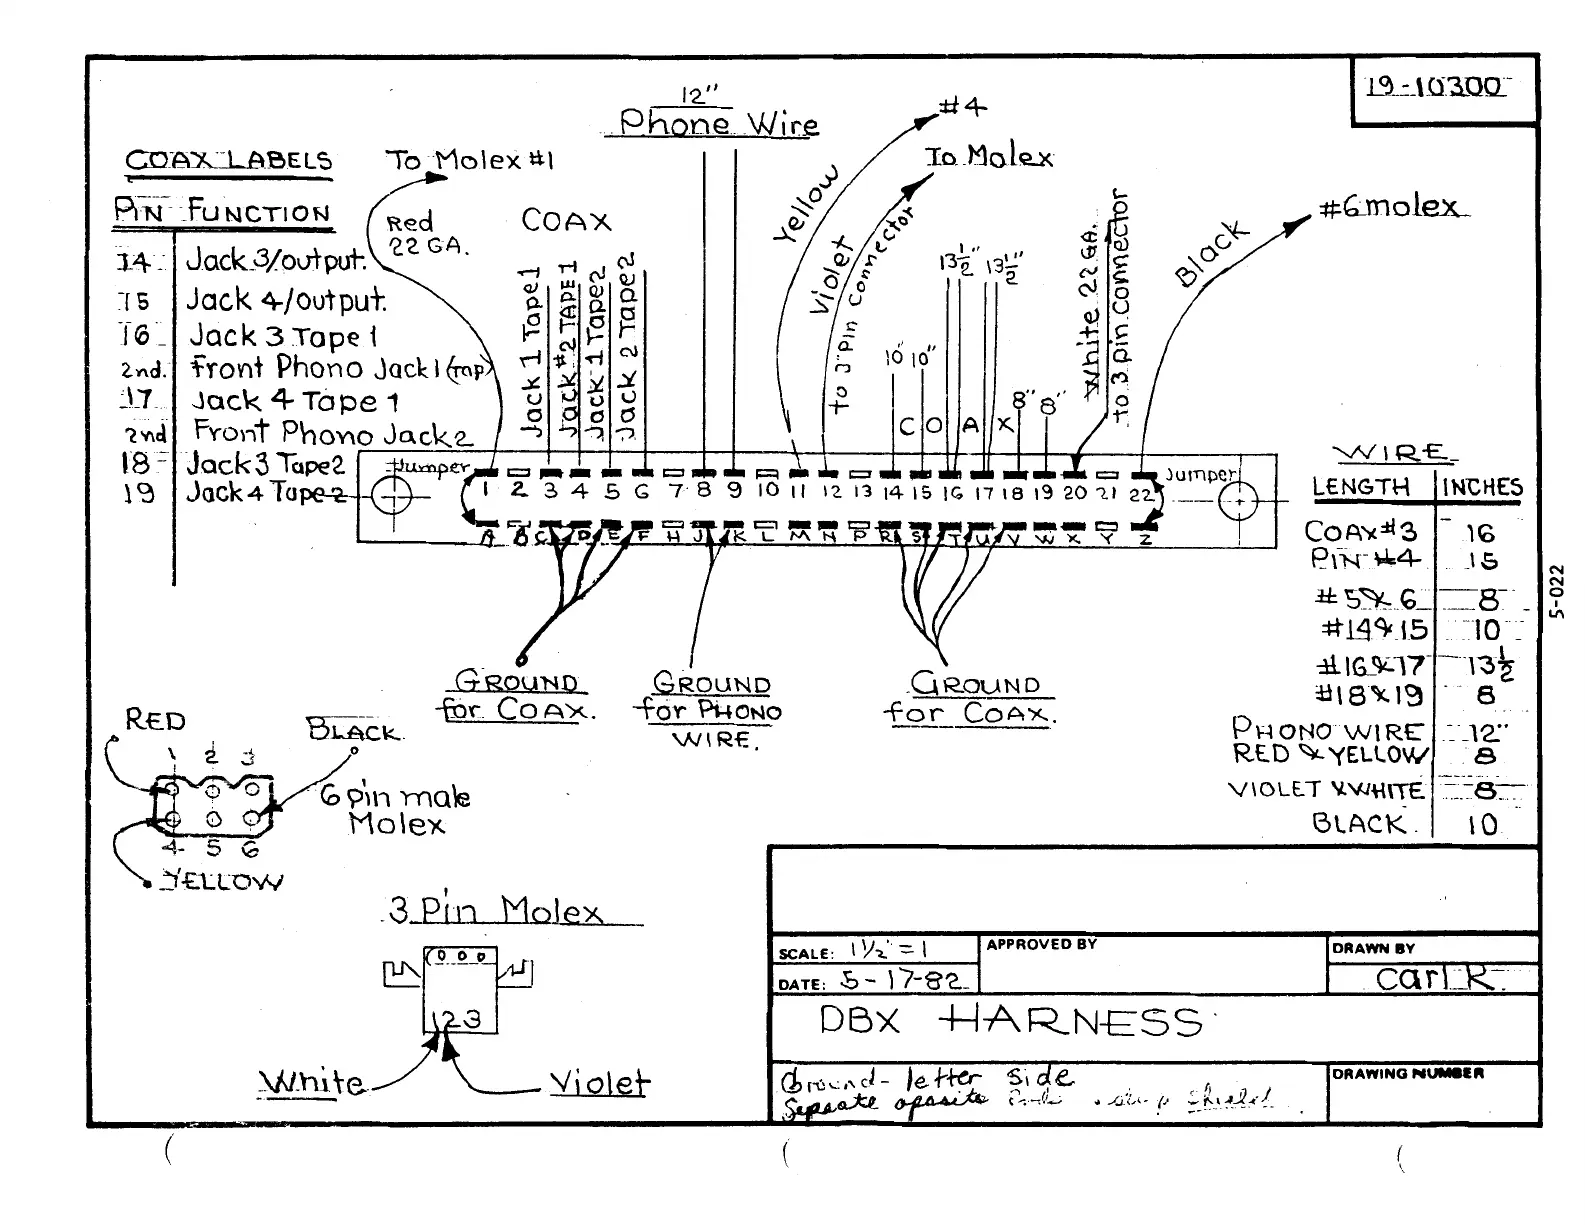 19-10300
12"
Phone Wire
#4
To Molex
COAX LABELS
PIN FUNCTION
14 Jack 3/output.
15 Jack 4/output.
16 Jack 3 Tape 1
2nd. Front Phono Jack 1 (Tap)
17 Jack 4 Tape 1
2nd Front Phono Jack 2
18 Jack 3 Tape2
19 Jack 4 Tape 2
To Molex #1
Red
22 GA.
COAX
Jack 1 Tape1
Jack #2 TAPE 1
Jack 1 Tape2
Jack 2 Tape2
Yellow
Violet
to 3 Pin Connector
10" 10"
13½" 13½"
COAX
8" 8"
White 22 GA.
to 3 pin connector
Black
#6 molex
Jumper
Jumper
1 2 3 4 5 6 7 8 9 10 11 12 13 14 15 16 17 18 19 20 21 22
A B C D E F H J K L M N P R S T U V W X Y Z
GROUND
for COAX.
GROUND
for PHONO
WIRE.
GROUND
for COAX.
WIRE
LENGTH INCHES
COAX #3 16
PIN #4 15
# 5 & 6 8
#14 & 15 10
#16 & 17 13½
#18 & 19 8
PHONO WIRE 12"
RED & YELLOW 8
VIOLET & WHITE 8
BLACK. 10
5-022
RED
BLACK
1 2 3
6 pin male
Molex
4 5 6
YELLOW
3 Pin Molex
1 2 3
White
Violet
SCALE: 1½" = 1
APPROVED BY
DRAWN BY
Carl R.
DATE: 5-17-82
DBX HARNESS
Ground - letter side
Sepaate oposite shield
DRAWING NUMBER